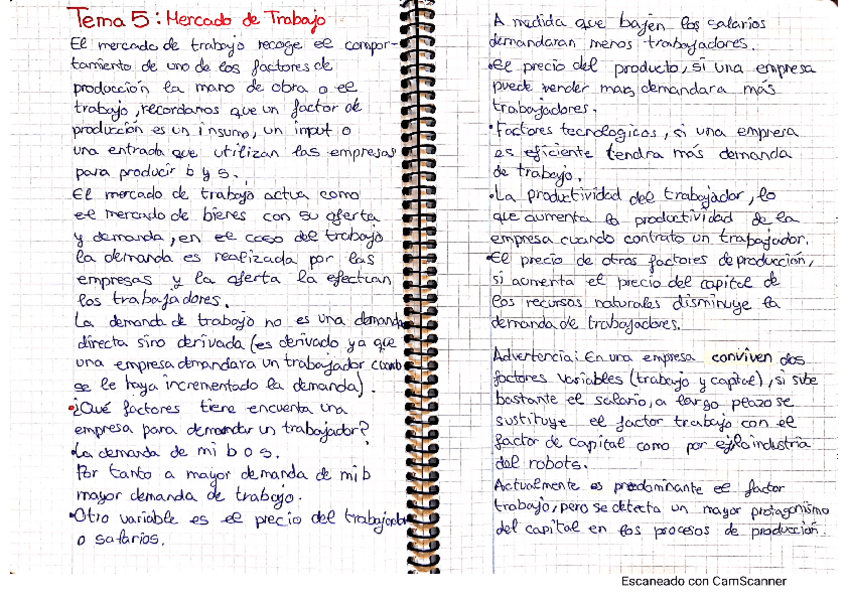 Tema 5: Mercado de Trabajo
El mercado de trabajo recoge el compor-
tamiento de uno de los factores de
producción la mano de obra o el
trabajo, recordamos que un factor de
producción es un insumo, un input o
una entrada que utilizan las empresas
para producir b y s.
El mercado de trabajo actua como
el mercado de bienes con su oferta
y demanda, en el caso del trabajo
la demanda es realizada por las
empresas y la oferta la efectuan
los trabajadores.
La demanda de trabajo no es una demanda
directa sino derivada (es derivado ya que
una empresa demandara un trabajador cuando
se le haya incrementado la demanda).
•¿Qué factores tiene encuenta una
empresa para demandar un trabajador?
•La demanda de mi b o s.
Por tanto a mayor demanda de mi b
mayor demanda de trabajo.
•Otro variable es el precio del trabajador
o salarios.
A medida que bajen los salarios
demandaran menos trabajadores.
•El precio del producto, si una empresa
puede vender mas, demandara más
trabajadores.
•Factores tecnologicos, si una empresa
es eficiente tendra más demanda
de trabajo.
•La productividad del trabajador, lo
que aumenta la productividad de la
empresa cuando contrato un trabajador.
•El precio de otros factores de producción,
si aumenta el precio del capital de
los recursos naturales disminuye la
demanda de trabajadores.
Advertencia: En una empresa conviven dos
factores variables (trabajo y capital), si sube
bastante el salario, a largo plazo se
sustituye el factor trabajo con el
factor de capital como por ejplo industria
del robots.
Actualmente es predominante el factor
trabajo, pero se detecta un mayor protagonismo
del capital en los procesos de producción.
Escaneado con CamScanner